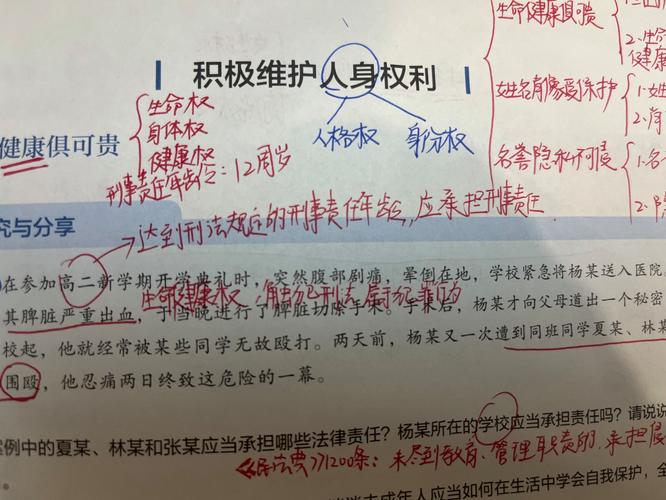 生命健康俱可贵
2.生命
健康
积极维护人身权利
姓名肖像受保护
1.姓
2.肖
人格权
身份权
生命权
身体权
健康权
健康俱可贵
名誉隐私不可侵
1.名
2.隐
刑事责任年龄：12周岁
究与分享
达到刑法规定的刑事责任年龄，应承担刑事责任
在参加高二新学期开学典礼时，突然腹部剧痛，晕倒在地，学校紧急将杨某送入医院
生命健康权：触犯刑法，属于犯罪行为
其脾脏严重出血，于当晚进行了脾脏切除手术。手术后，杨某才向父母道出一个秘密
校起，他就经常被某些同学无故殴打。两天前，杨某又一次遭到同班同学夏某、林某
围殴，他忍痛两日终致这危险的一幕。
案例中的夏某、林某和张某应当承担哪些法律责任？杨某所在的学校应当承担责任吗？请说说
《民法典》1200条：未尽到教育、管理职责的，承担
未成年人应当如何在生活中学会自我保护，